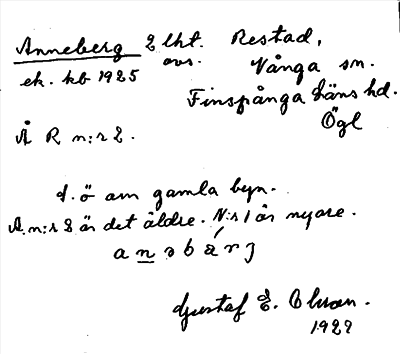 Anneberg 2 lht. Restad,
avs. Vånga sn.
ek. kb 1925
Finspånga läns hd.
Ögl
Å R n:r 2.
d. ö om gamla byn.
A. n:r 2 är det äldre. N:r 1 är nyare.
a n ə b á r j
Gustaf E. Olsson.
1929